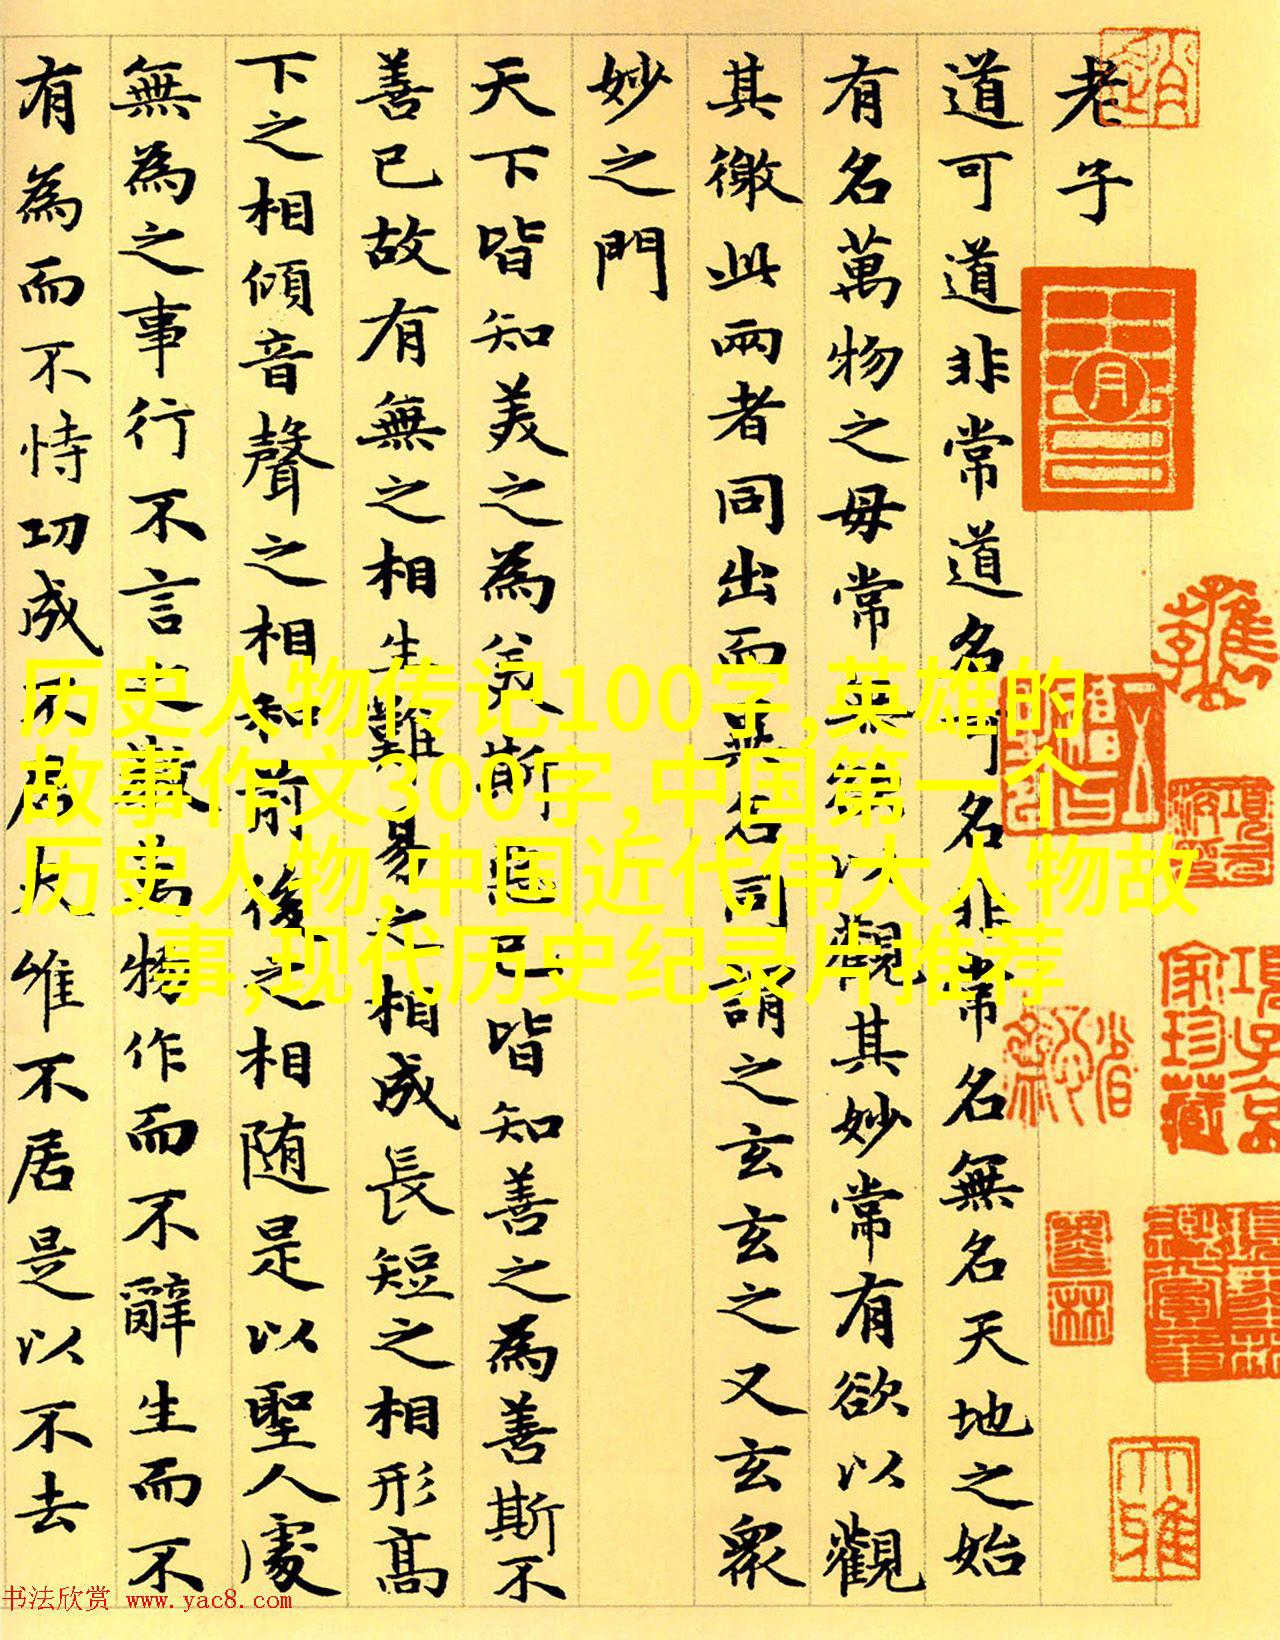 老子
道可道非常道名可名非常名無名天地之始
有名萬物之母常無欲以觀其妙常有欲以觀
其徼此兩者同出而異名同謂之玄玄之又玄衆
妙之門
天下皆知美之為美斯惡已皆知善之為善斯不
善已故有無之相生難易之相成長短之相形髙
下之相傾音聲之相和前後之相随是以聖人處
無為之事行不言之教萬物作而不辭生而不
有為而不恃功成不居夫惟不居是以不去
历史人物传记100字,英雄的
故事作文300字,中国第一个
历史人物,中国近代伟大人物故
事,现代历史纪录片推荐
书法欣赏 www.yac8.com